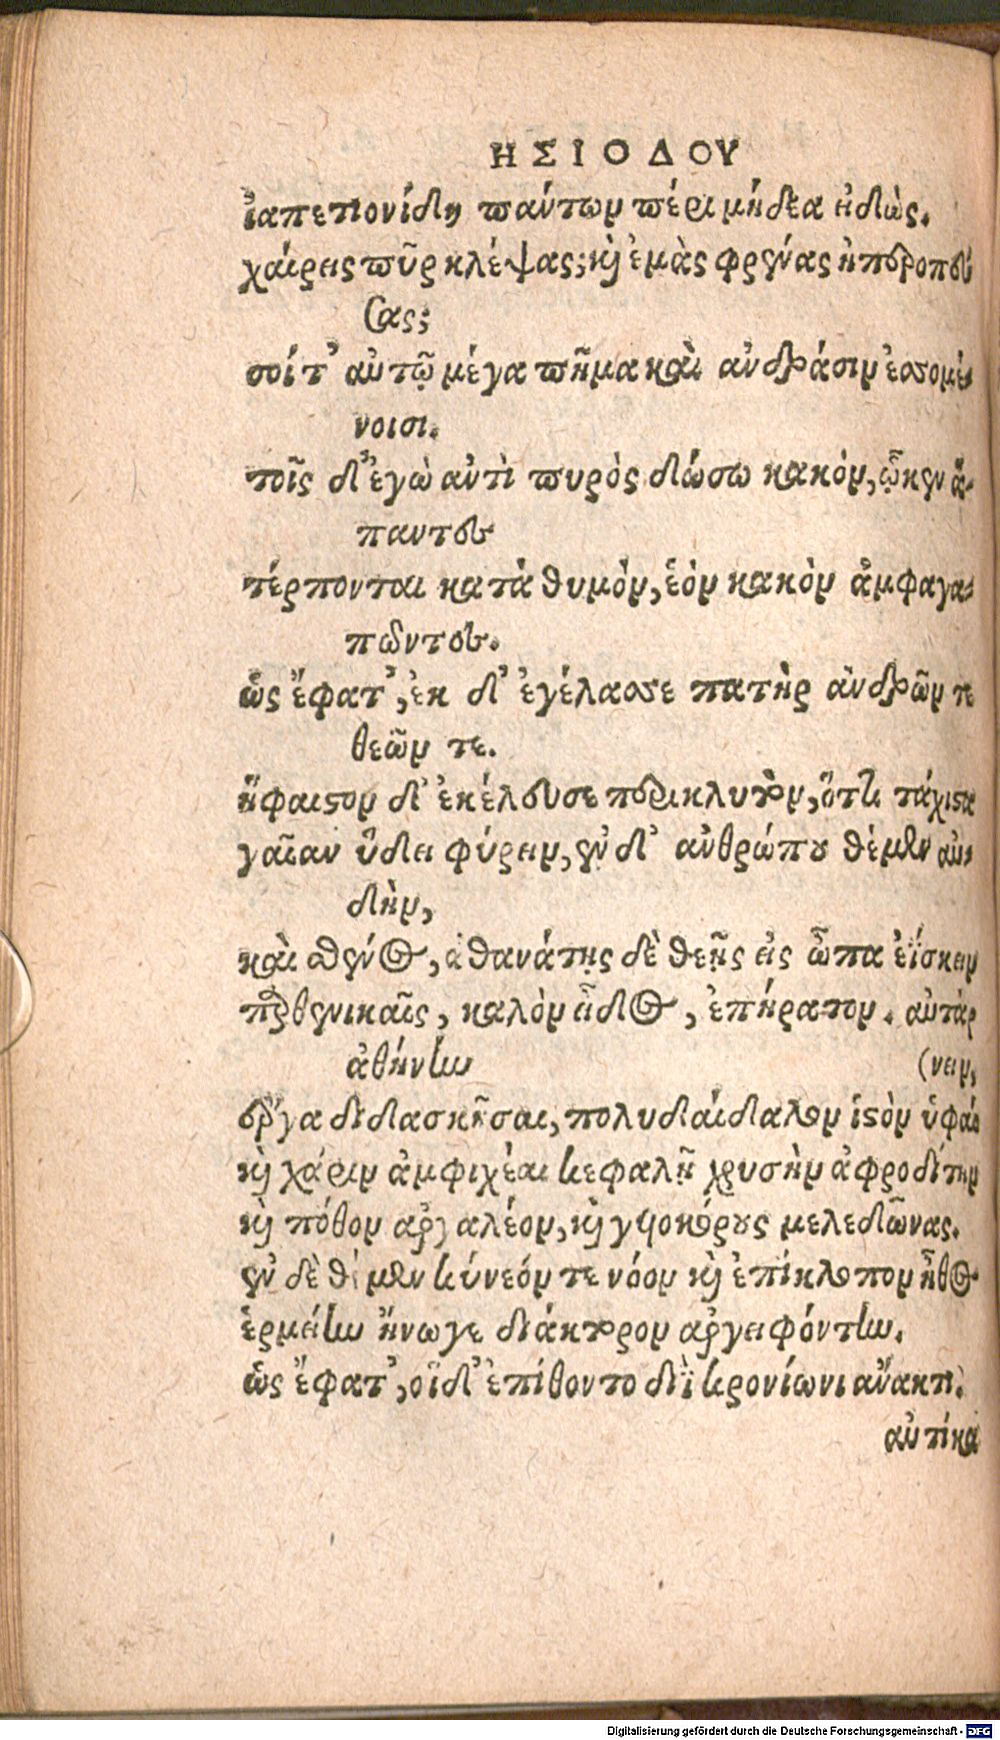 ΗΣΙΟΔΟΥ
ἰαπετιονίδη πάντων πέρι μήδεα εἰδὼς.
χαίρεις πῦρ κλέψας; κỳ ἐμὰς φρένας ἠπεροπεύ
σας;
σοί τ' αὐτῷ μέγα πῆμα καὶ ἀνδράσιν ἐσσομέ-
νοισι.
τοῖς δ' ἐγὼ ἀντὶ πυρὸς δώσω κακὸν, ᾧ κεν ἅ-
παντες
τέρπονται κατὰ θυμὸν, ἑὸν κακὸν ἀμφαγα-
πῶντες.
ὣς ἔφατ', ἐκ δ' ἐγέλασσε πατὴρ ἀνδρῶν τε
θεῶν τε.
ἥφαιστον δ' ἐκέλευσε περικλυτὸν, ὅττι τάχιστα
γαῖαν ὕδει φύρειν, ἐν δ' ἀνθρώπου θέμεν αὐ-
δὴν,
καὶ σθένος, ἀθανάτῃς δὲ θεῇς εἰς ὦπα ἐΐσκειν
παρθενικαῖς, καλὸν εἶδος, ἐπήρατον. αὐτὰρ
ἀθήνην (νειν,
ἔργα διδασκῆσαι, πολυδαίδαλον ἱστὸν ὑφαί
κỳ χάριν ἀμφιχέαι κεφαλῇ χρυσὴν ἀφροδίτην
κỳ πόθον ἀργαλέον, κỳ γυιοκόρους μελεδῶνας.
ἐν δὲ θέμεν κύνεόν τε νόον κỳ ἐπίκλοπον ἦθος
ἑρμείην ἤνωγε διάκτορον ἀργειφόντην.
ὣς ἔφατ', οἳ δ' ἐπίθοντο διῒ κρονίωνι ἄνακτι.
αὐτίκα
Digitalisierung gefördert durch die Deutsche Forschungsgemeinschaft - DFG